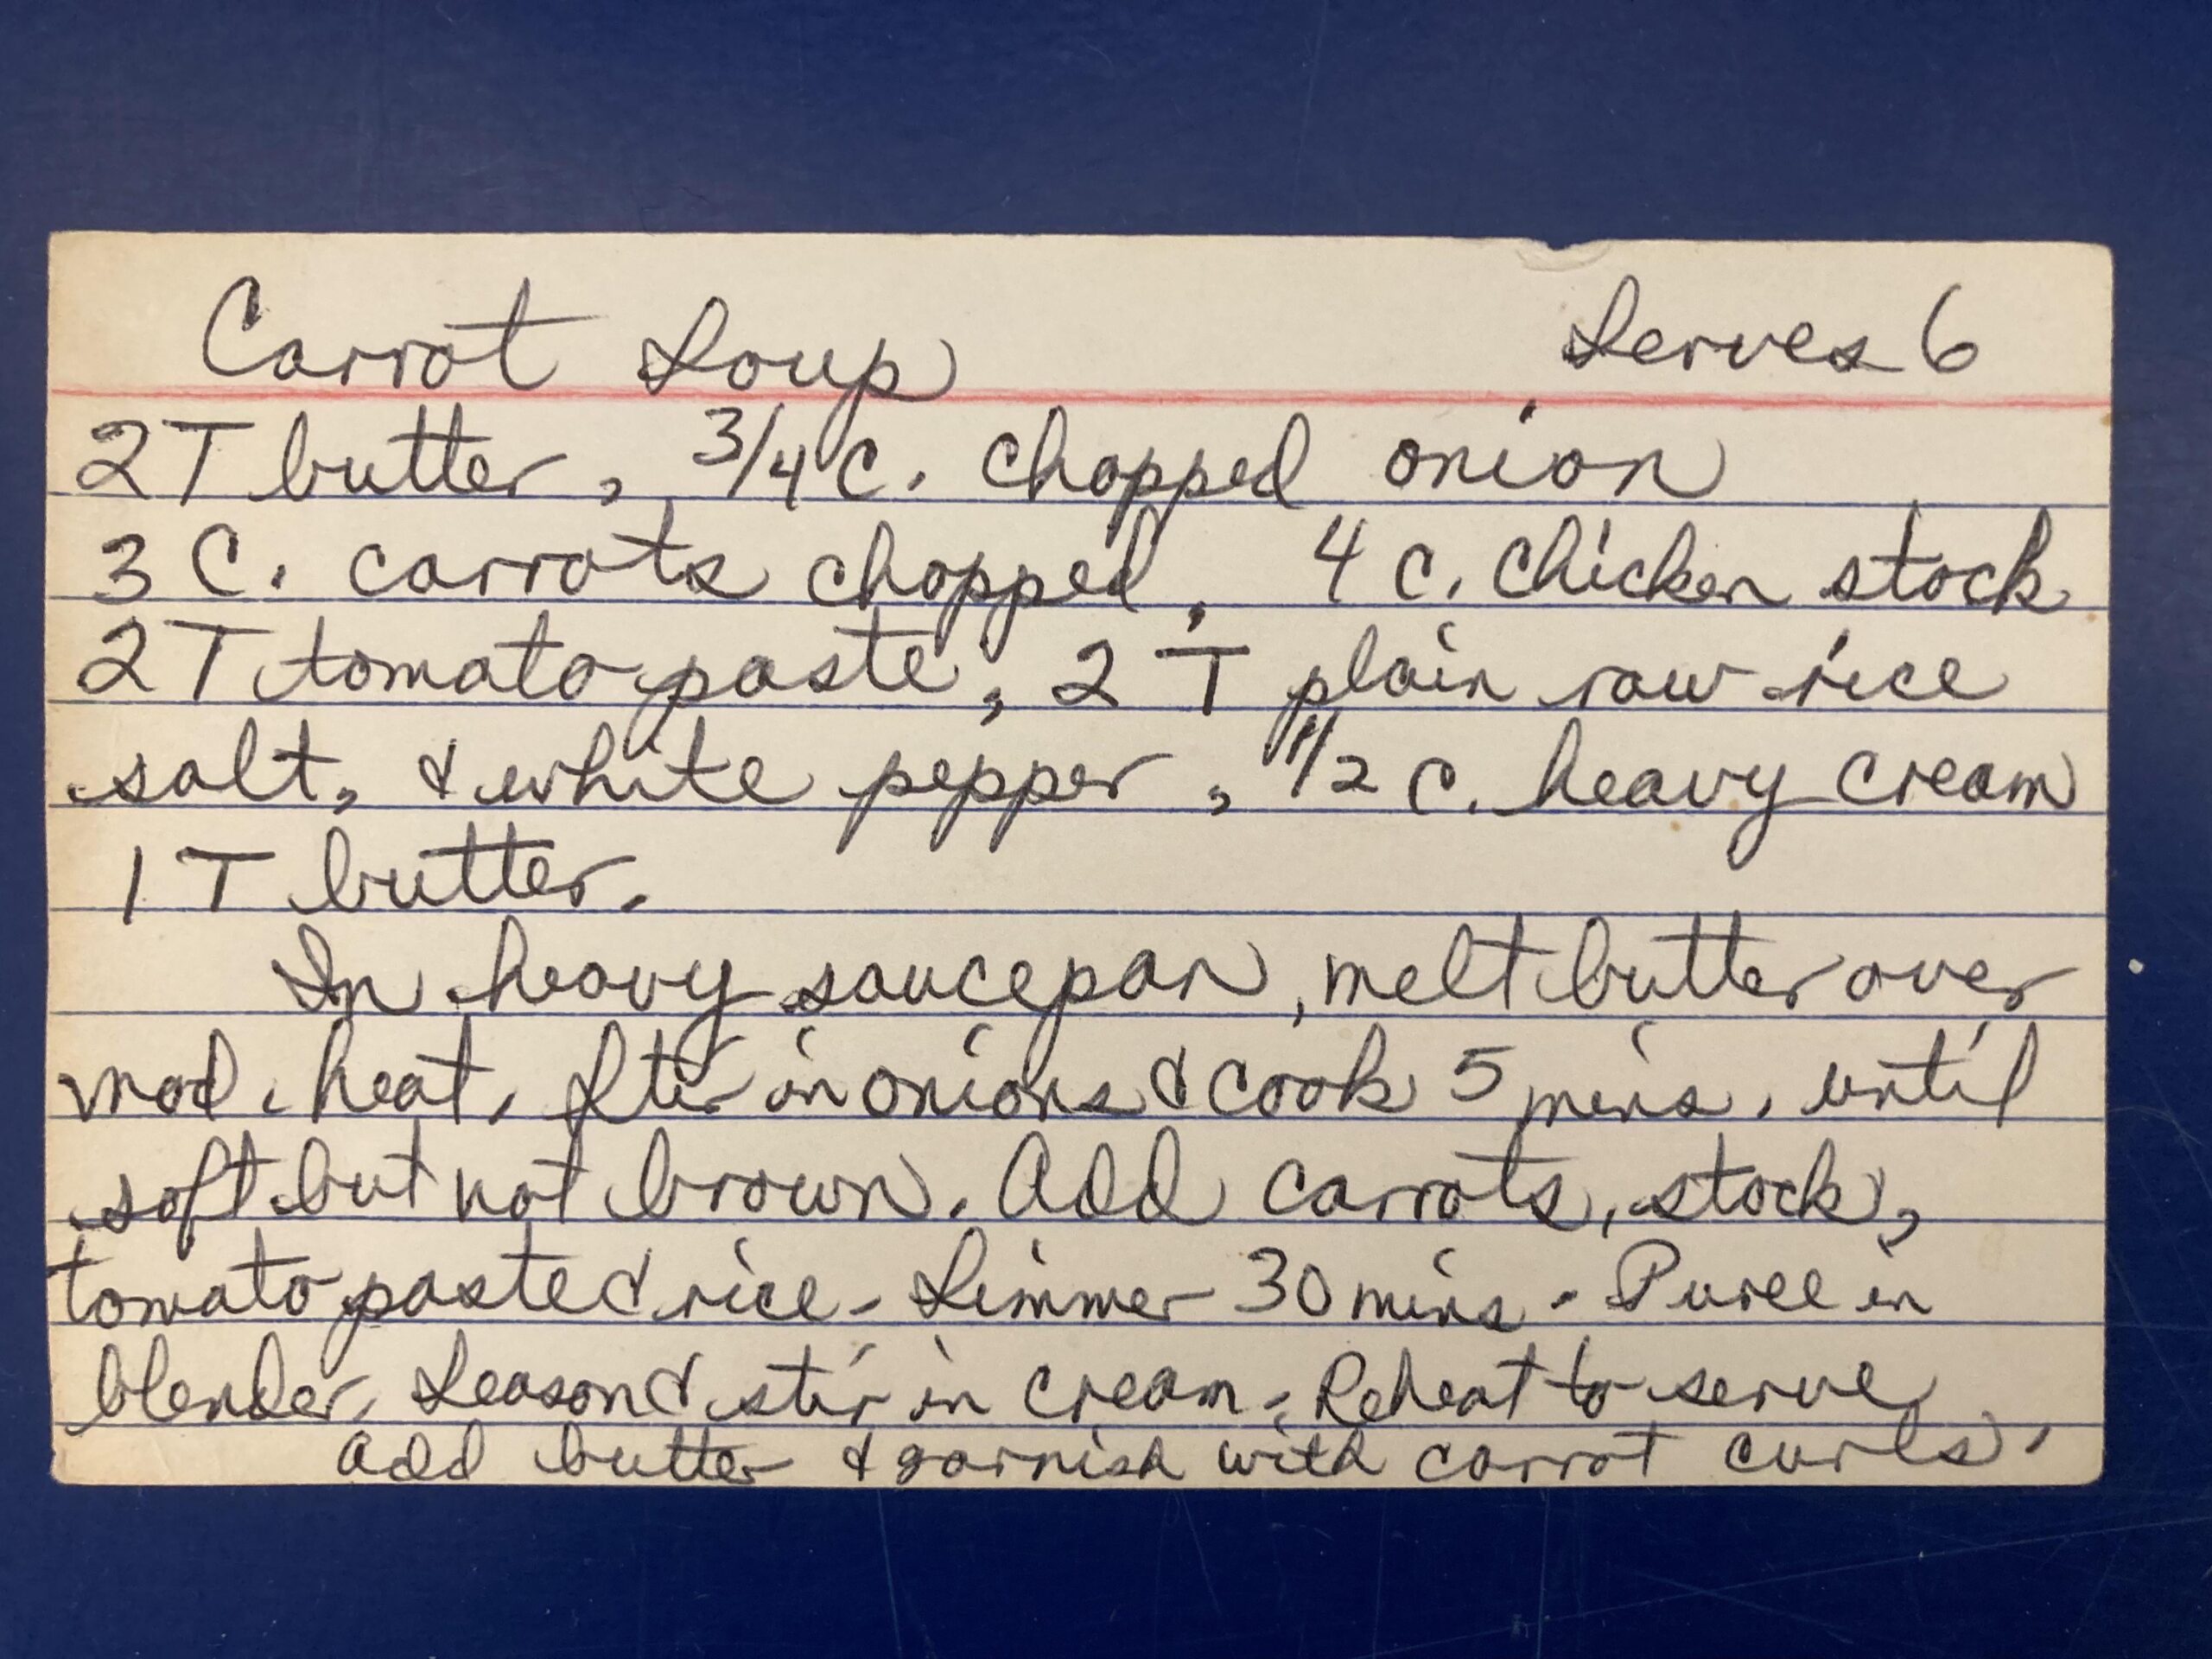 Carrot Soup Serves 6
2 T butter, 3/4 C. chopped onion
3 C. carrots chopped, 4 C. chicken stock
2 T tomato paste, 2 T plain raw rice
salt, & white pepper, 1/2 C. heavy cream
1 T butter.
In heavy saucepan, melt butter over
mod. heat. Stir in onions & cook 5 mins. until
soft but not brown. Add carrots, stock,
tomato paste & rice - Simmer 30 mins - Puree in
blender. Season & stir in cream - Reheat to serve
add butter & garnish with carrot curls.